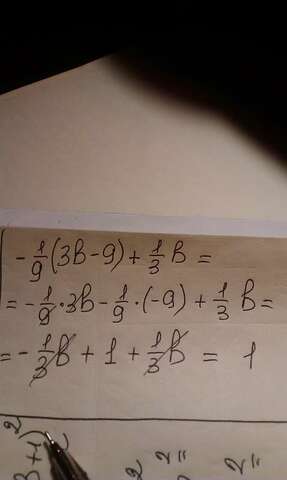 -1/9(3b-9)+1/3 b =
= -1/9 · 3b - 1/9 · (-9) + 1/3 b =
= -1/3 b + 1 + 1/3 b = 1